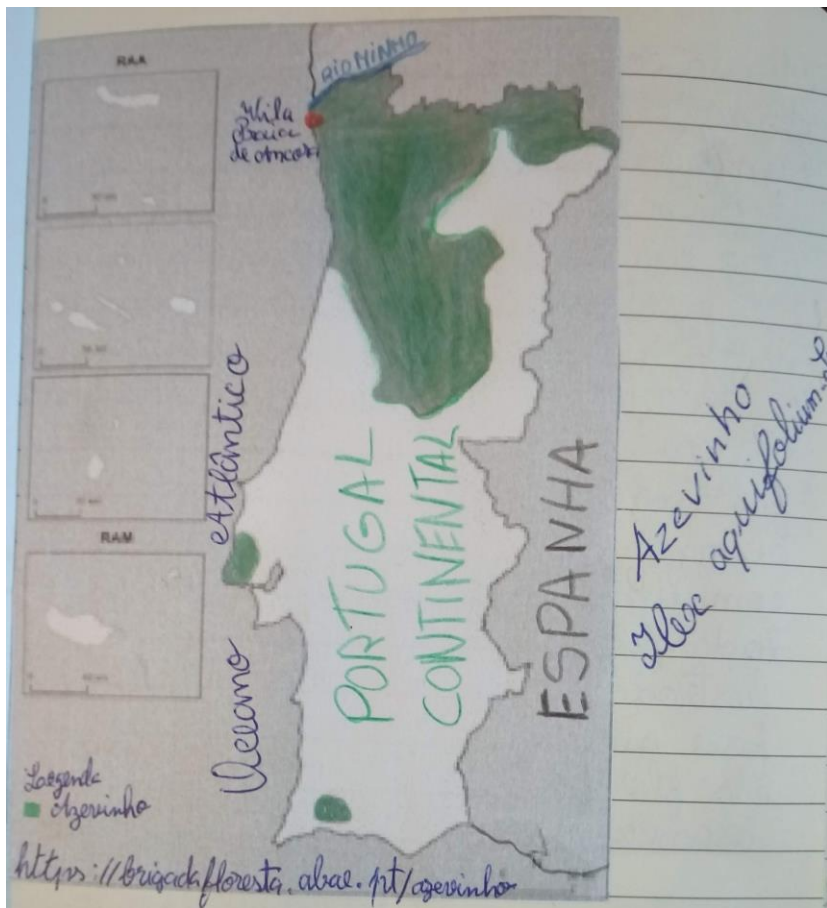 RAA
RIO MINHO
Vila
Praia
de Âncora
Atlântico
Oceano
RAM
PORTUGAL
CONTINENTAL
ESPANHA
Azevinho
Ilex aquifolium
Legenda
Azevinho
https://brigadafloresta.abae.pt/azevinho